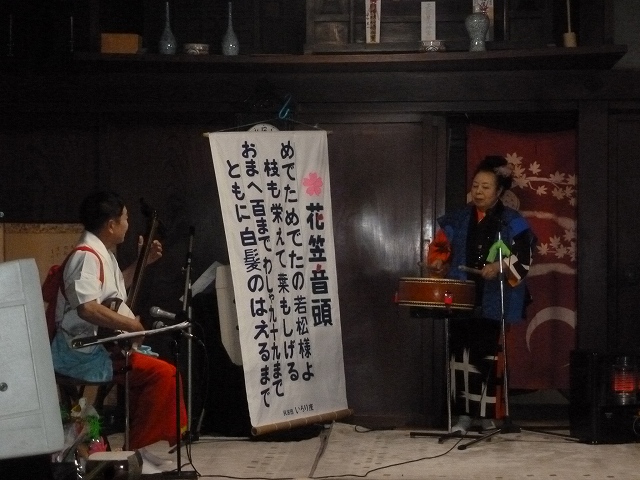 花笠音頭
めでためでたの若松様よ
枝も栄えて葉もしげる
おまへ百までわしゃ九十九まで
ともに白髪のはえるまで